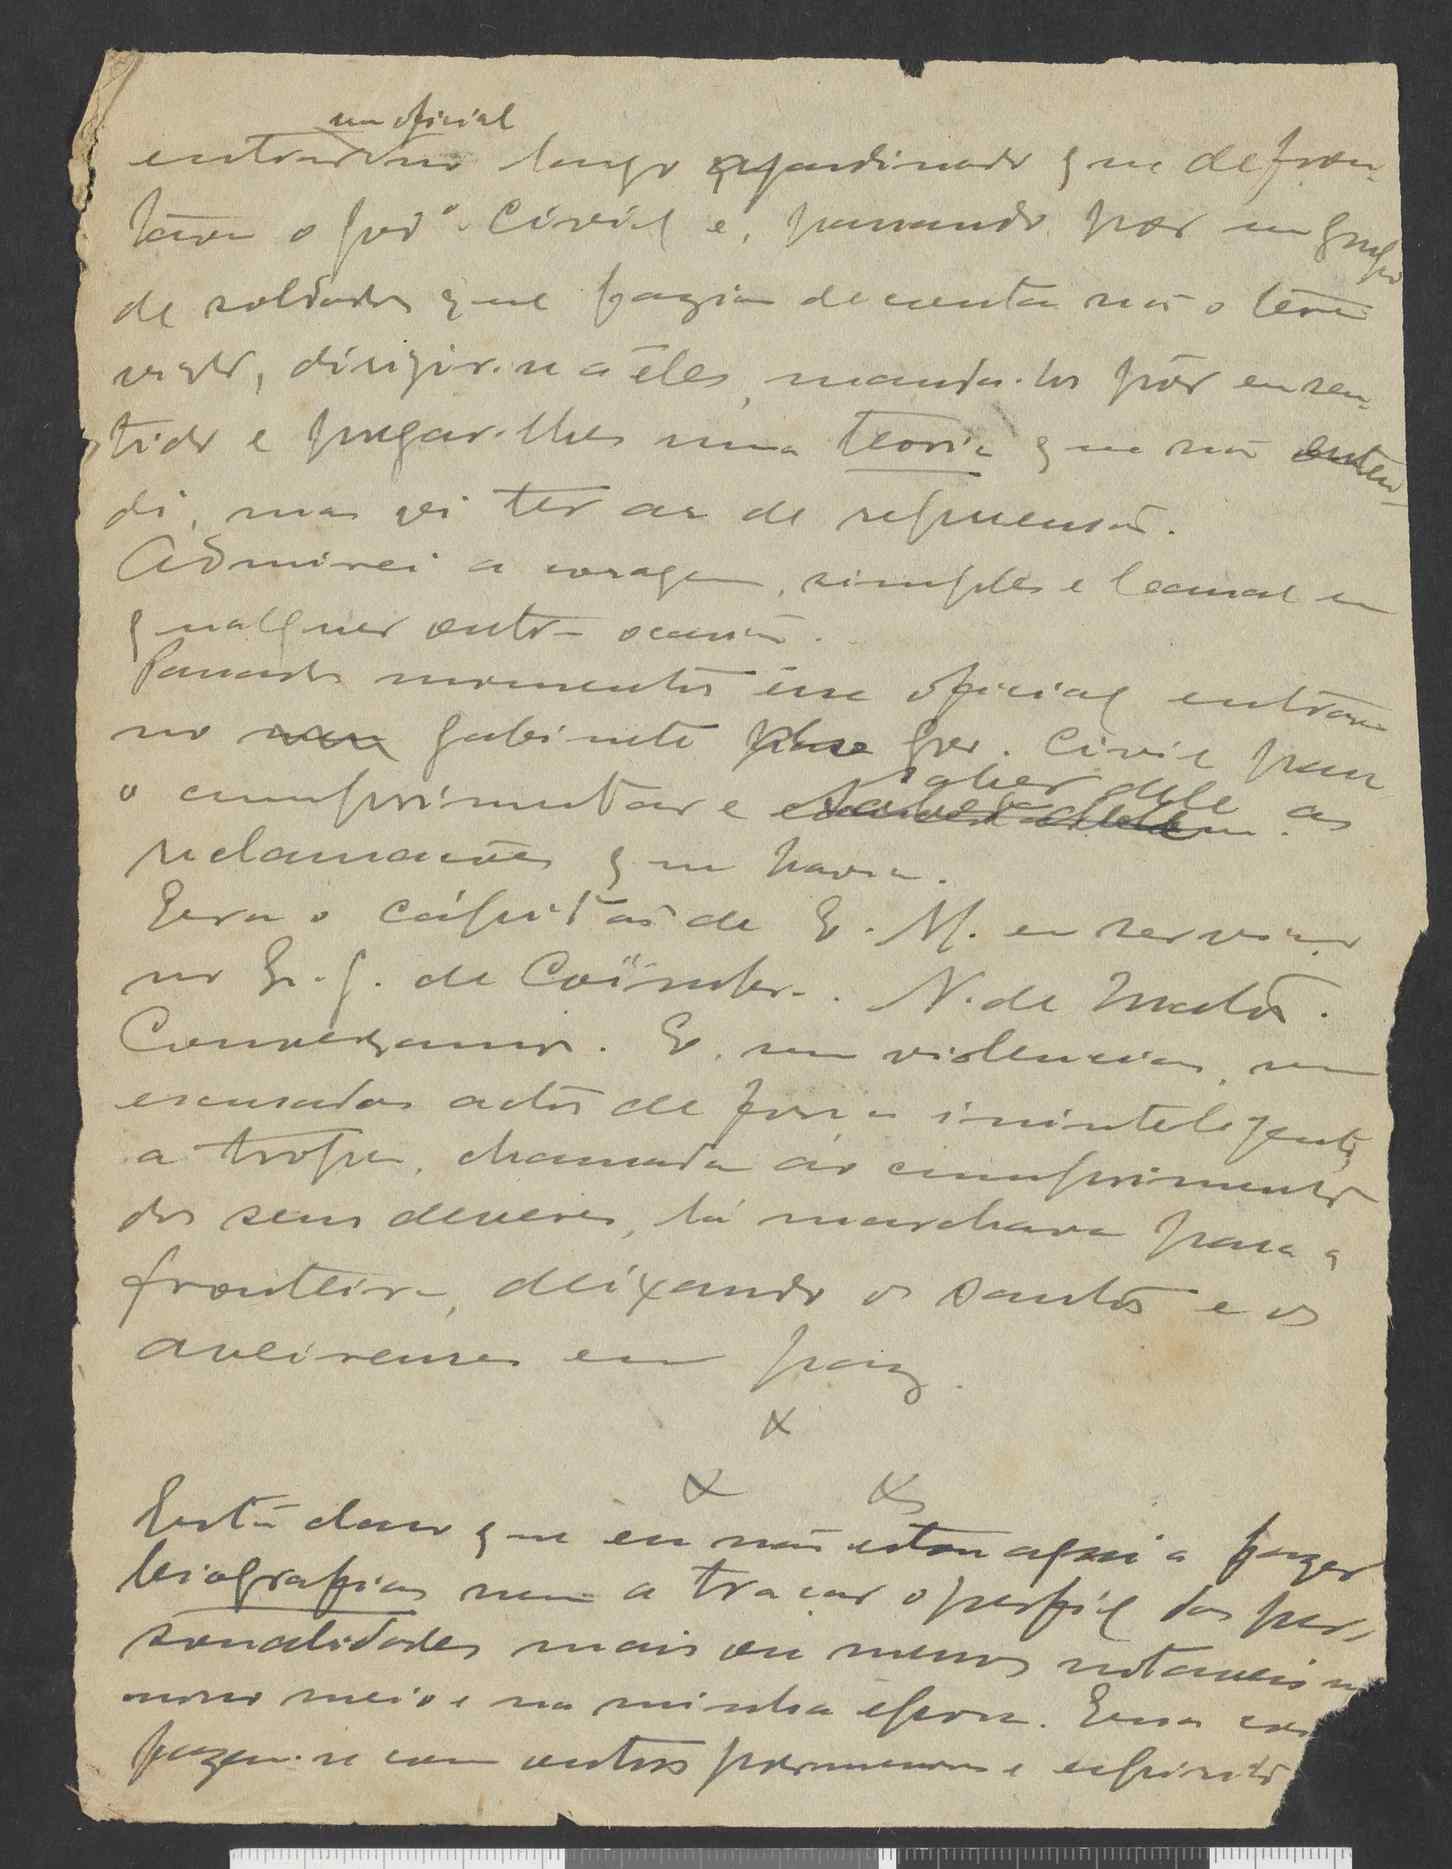 um oficial
entrar no largo ajardinado que defron-
tava o gov.º civil e, passando por um grupo
de soldados que fazia de conta não o terem
visto, dirigir-se a êles, manda-los pôr em sen-
tido e pregar-lhes uma teoria que não enten-
di, mas vi ter ar de repreensão.
Admirei a coragem, simples e banal em
qualquer outra ocasião.
Passados momentos êsse oficial entrava
no gabinete gov. civil para
o cumprimentar e saber dele as
reclamações que havia.
Era o capitão de E. M. em serviço
no Q. G. de Coimbra. N. de Matos.
Conversamos. E, sem violencias, sem
escusados actos de força ininteligente,
a tropa, chamada ao cumprimento
dos seus deveres, lá marchava para a
fronteira, deixando os santos e os
aveirenses em paz.
x
x x
Está claro que eu não estou aqui a fazer
biografias nem a traçar o perfil das per-
sonalidades mais ou menos notaveis no
nosso meio e na minha época. Essas
fazem-se com outros pormenores e espirito